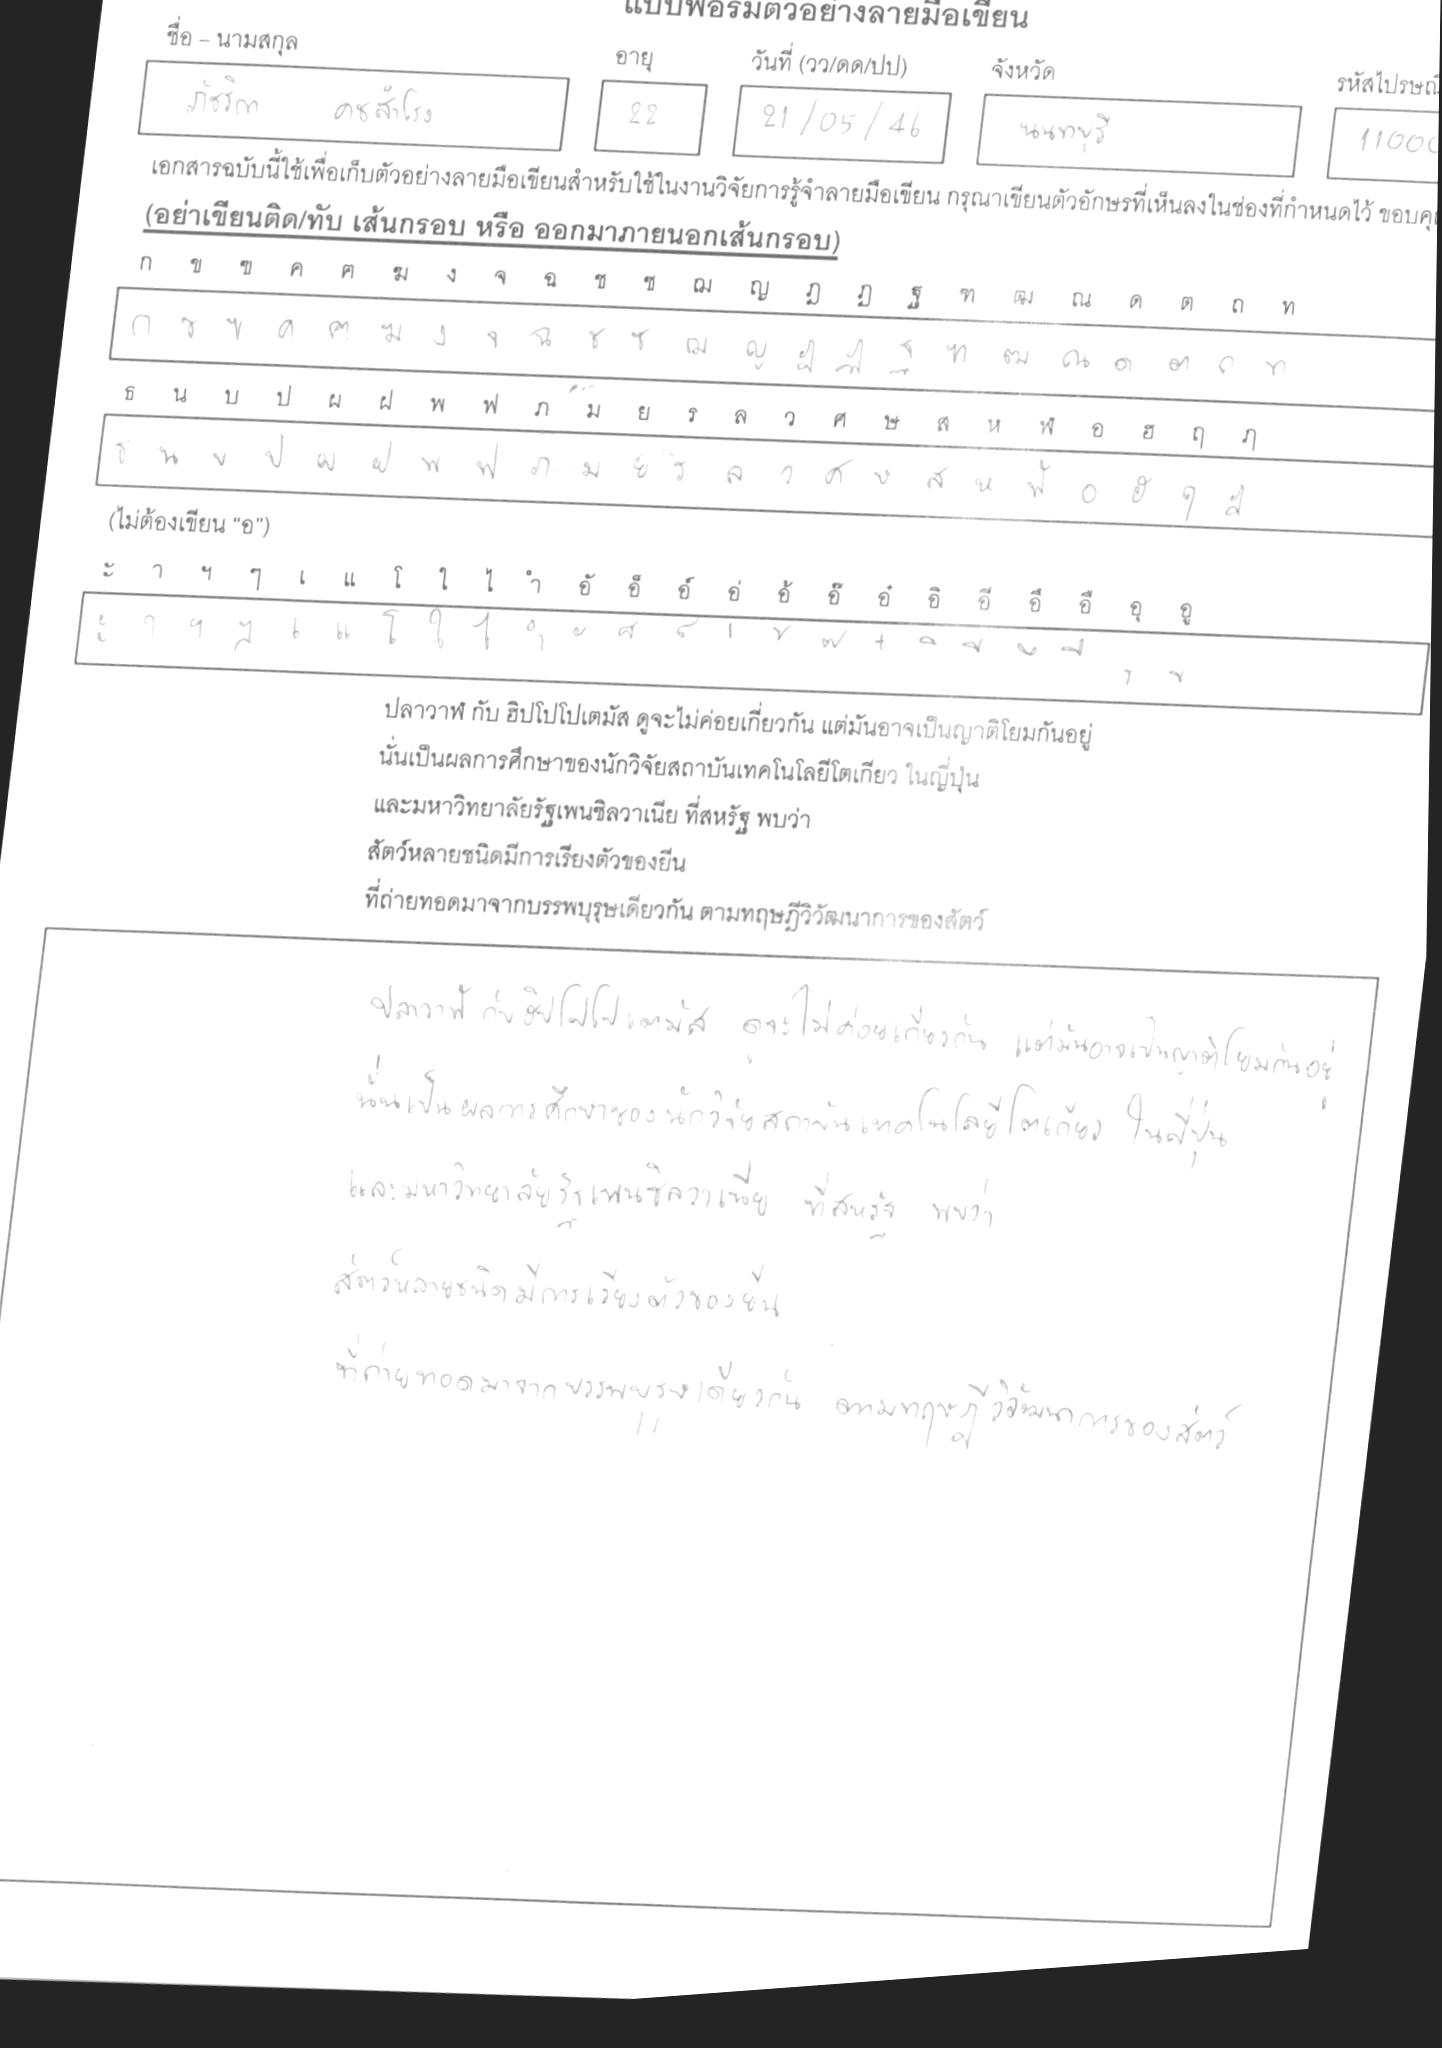 แบบฟอร์มตัวอย่างลายมือเขียน
ชื่อ – นามสกุล อายุ วันที่ (วว/ดด/ปป) จังหวัด รหัสไปรษณี
ภัชริกา คชสำโรง 22 21/05/46 นนทบุรี 11000
เอกสารฉบับนี้ใช้เพื่อเก็บตัวอย่างลายมือเขียนสำหรับใช้ในงานวิจัยการรู้จำลายมือเขียน กรุณาเขียนตัวอักษรที่เห็นลงในช่องที่กำหนดไว้ ขอบคุ
(อย่าเขียนติด/ทับ เส้นกรอบ หรือ ออกมาภายนอกเส้นกรอบ)
ก ข ฃ ค ฅ ฆ ง จ ฉ ช ซ ฌ ญ ฎ ฏ ฐ ฑ ฒ ณ ด ต ถ ท
ก ข ฃ ค ฅ ฆ ง จ ฉ ช ซ ฌ ญ ฎ ฏ ฐ ฑ ฒ ณ ด ต ถ ท
ธ น บ ป ผ ฝ พ ฟ ภ ม ย ร ล ว ศ ษ ส ห ฬ อ ฮ ฤ ภ
ธ น บ ป ผ ฝ พ ฟ ภ ม ย ร ล ว ศ ษ ส ห ฬ อ ฮ ฤ ฎ
(ไม่ต้องเขียน “อ”)
ะ า ฯ ๆ เ แ โ ใ ไ ำ อั อ็ อ์ อ่ อ้ อ๊ อ๋ อิ อี อึ อื อุ อู
ะ า ฯ ๆ เ แ โ ใ ไ ำ ั ็ ์ ่ ้ ๊ ๋ ิ ี ึ ื ุ ู
ปลาวาฬ กับ ฮิปโปโปเตมัส ดูจะไม่ค่อยเกี่ยวกัน แต่มันอาจเป็นญาติโยมกันอยู่
นั่นเป็นผลการศึกษาของนักวิจัยสถาบันเทคโนโลยีโตเกียว ในญี่ปุ่น
และมหาวิทยาลัยรัฐเพนซิลวาเนีย ที่สหรัฐ พบว่า
สัตว์หลายชนิดมีการเรียงตัวของยีน
ที่ถ่ายทอดมาจากบรรพบุรุษเดียวกัน ตามทฤษฎีวิวัฒนาการของสัตว์
ปลาวาฬ กับฮิปโปโปเตมัส ดูจะไม่ค่อยเกี่ยวกัน แต่มันอาจเป็นญาติโยมกันอยู่
นั่นเป็นผลการศึกษาของนักวิจัยสถาบันเทคโนโลยีโตเกียว ในญี่ปุ่น
และมหาวิทยาลัยรัฐเพนซิลวาเนีย ที่สหรัฐ พบว่า
สัตว์หลายชนิดมีการเรียงตัวของยีน
ที่ถ่ายทอดมาจากบรรพบุรุษเดียวกัน ตามทฤษฎีวิวัฒนาการของสัตว์